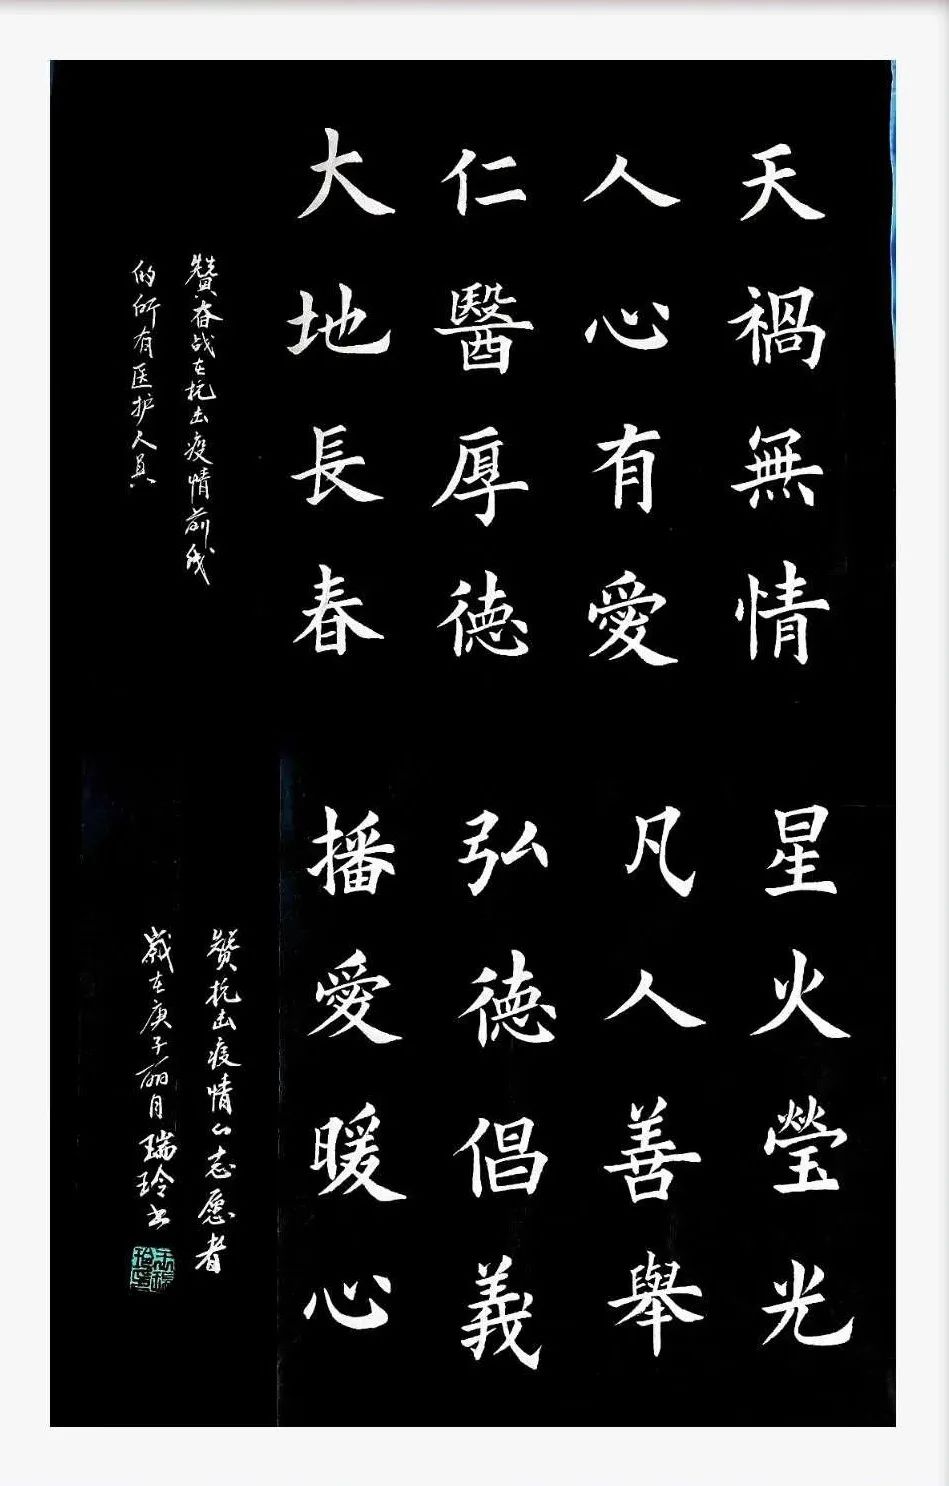 天禍無情
人心有愛
仁醫厚德
大地長春
赞奋战在抗击疫情前线
的所有医护人员
星火瑩光
凡人善舉
弘德倡義
播愛暖心
赞抗击疫情的志愿者
歲在庚子丽月瑞玲书